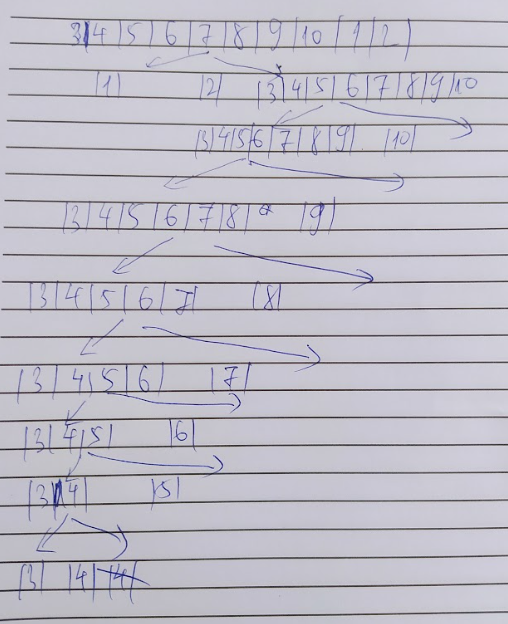 3|4|5|6|7|8|9|10|1|2|
|1| |2| |3|4|5|6|7|8|9|10
|3|4|5|6|7|8|9| |10|
|3|4|5|6|7|8| |9|
|3|4|5|6|7| |8|
|3|4|5|6| |7|
|3|4|5| |6|
|3|4| |5|
|3| |4| |4|